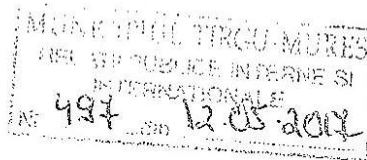 MUNICIPIUL TIRGU-MURES
RELATII PUBLICE INTERNE SI
INTERNATIONALE
NR 497 din 12.05.2017